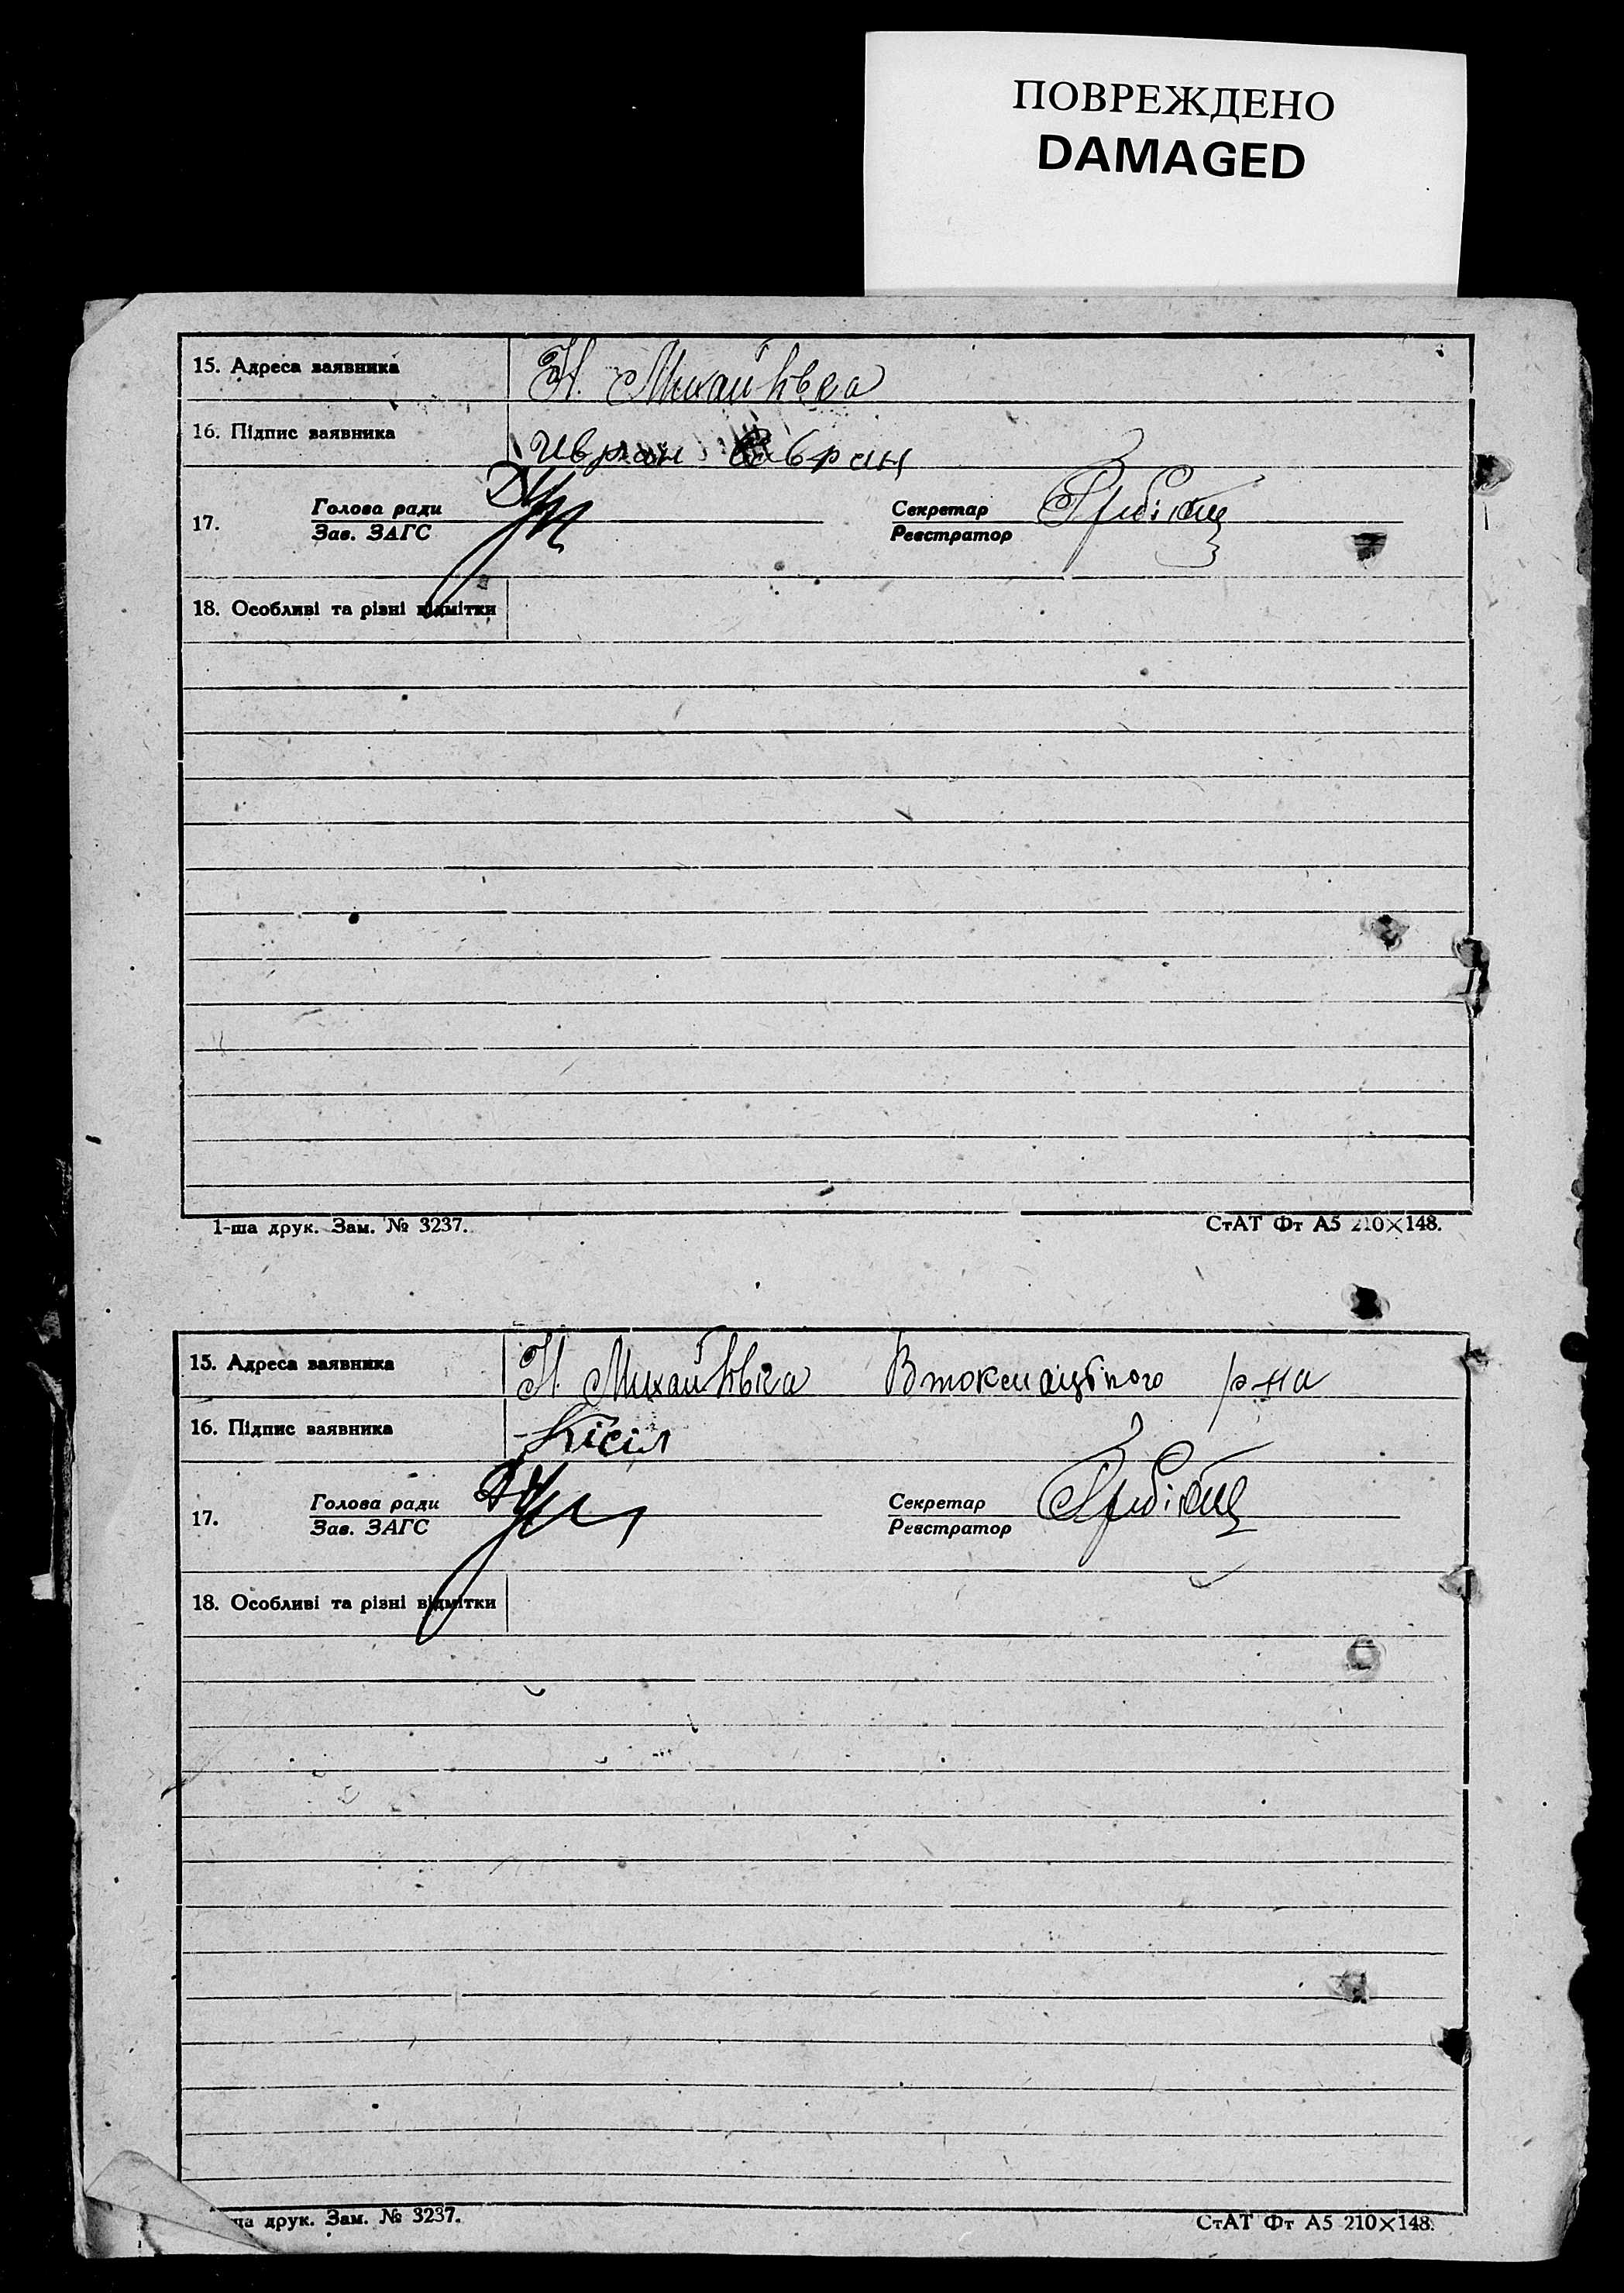 ПОВРЕЖДЕНО
DAMAGED
15. Адреса заявника Н. Михайлівка
16. Підпис заявника
17. Голова ради Секретар
Зав. ЗАГС Реєстратор
18. Особливі та різні відмітки
1-ша друк. Зам. № 3237. СтАТ Фт А5 210×148.
15. Адреса заявника Н. Михайлівка р-на
16. Підпис заявника Кісіл
17. Голова ради Секретар
Зав. ЗАГС Реєстратор
18. Особливі та різні відмітки
ша друк. Зам. № 3237. СтАТ Фт А5 210×148.